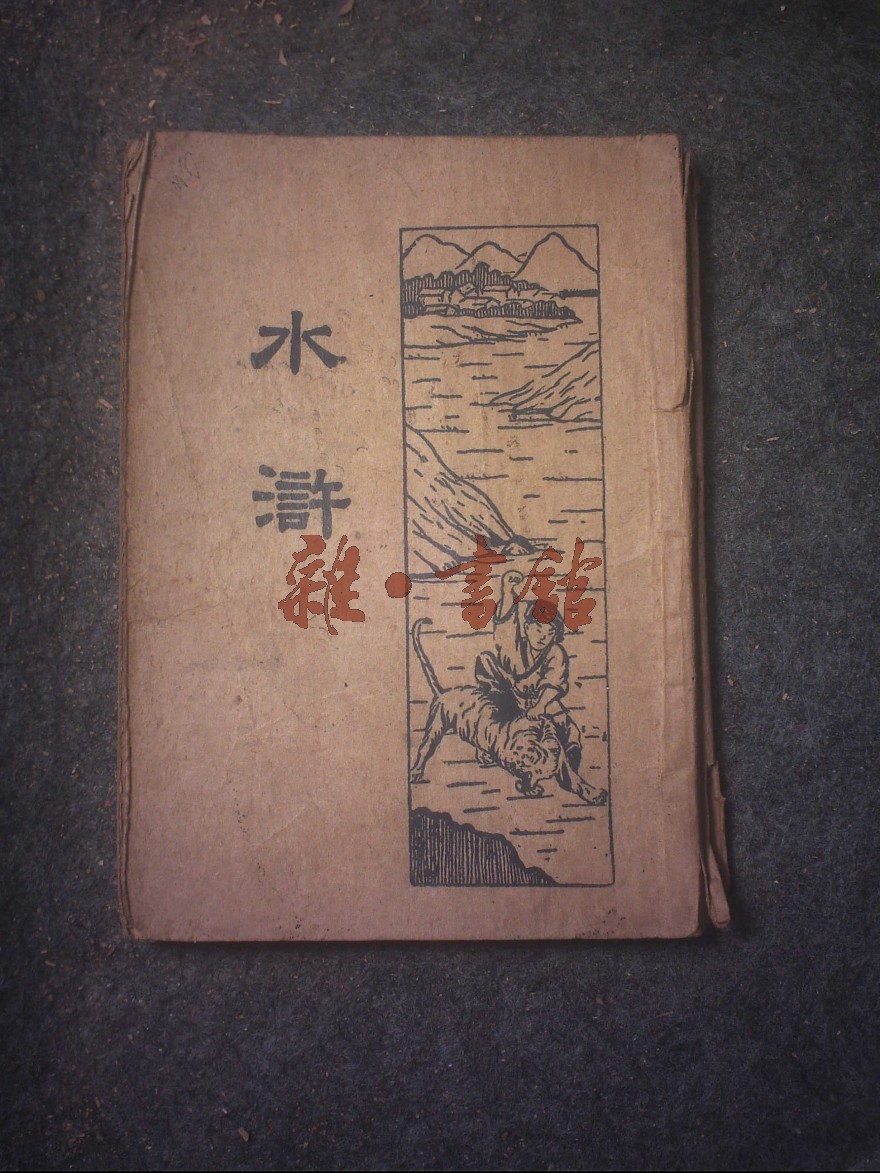 水滸
雜·書館